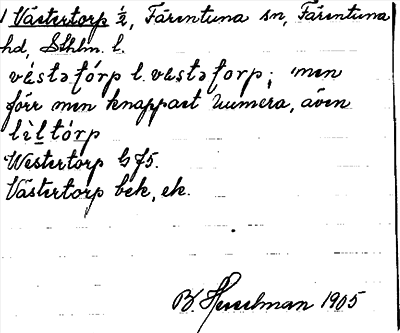 1 Västertorp ½, Färentuna sn, Färentuna
hd, Sthlm. l.
véstəfórp l. vestəforp; men
förr men knappast numera, även
lìltórp
Westertorp Gf5.
Västertorp bek, ek.
B. Hesselman 1905